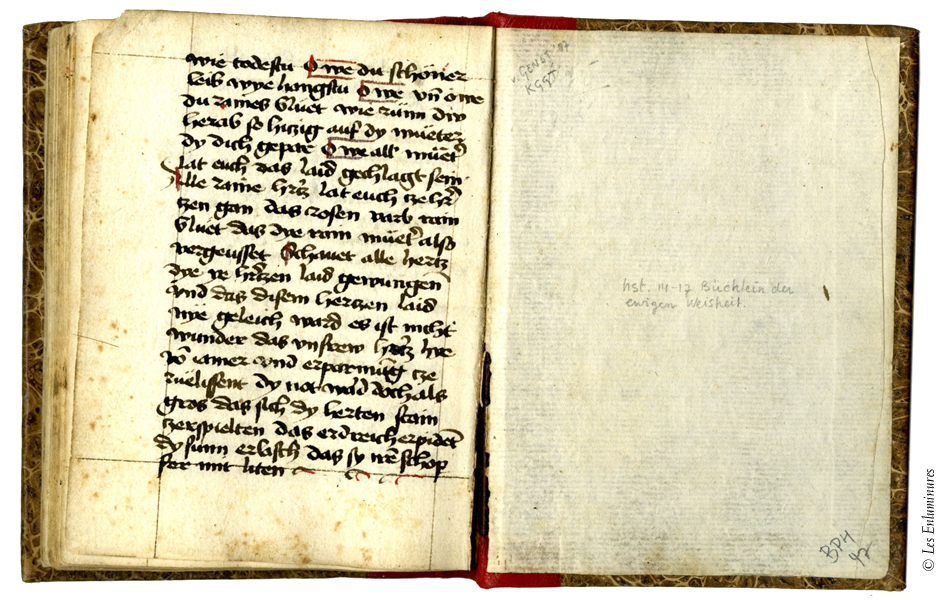 wie todestu O we du schöner
leib wye hangstu O we vn̄ o we
du raines bluet wie rünn díw
herab so hiczig auf dy mueter
dy dich gepar O we all müetˀ
lat euch das laid gechlagt sein
Alle raine hrcz lat euch cze hrˀ
czen gan das rosen varb rain
bluet das dye rain muetˀ also
vergeusset Schauet alle hertz
dye ye hrczen laid gewungen̄
vnd das disem herczen laid
nye geleich ward es ist nicht
wunder das vnsrew hrcz hye
vō iamer vnd erparmūg cze
not ward doch als
gros das sich dy herten stain
zerspielten das erdreich erpidet
dy sunn erlasch das sy schop
fer mit liten
GENGT '97
KGGT
hst. 14-17 Büchlein der
ewigen Weisheit.
BPH
47
© Les Enluminures